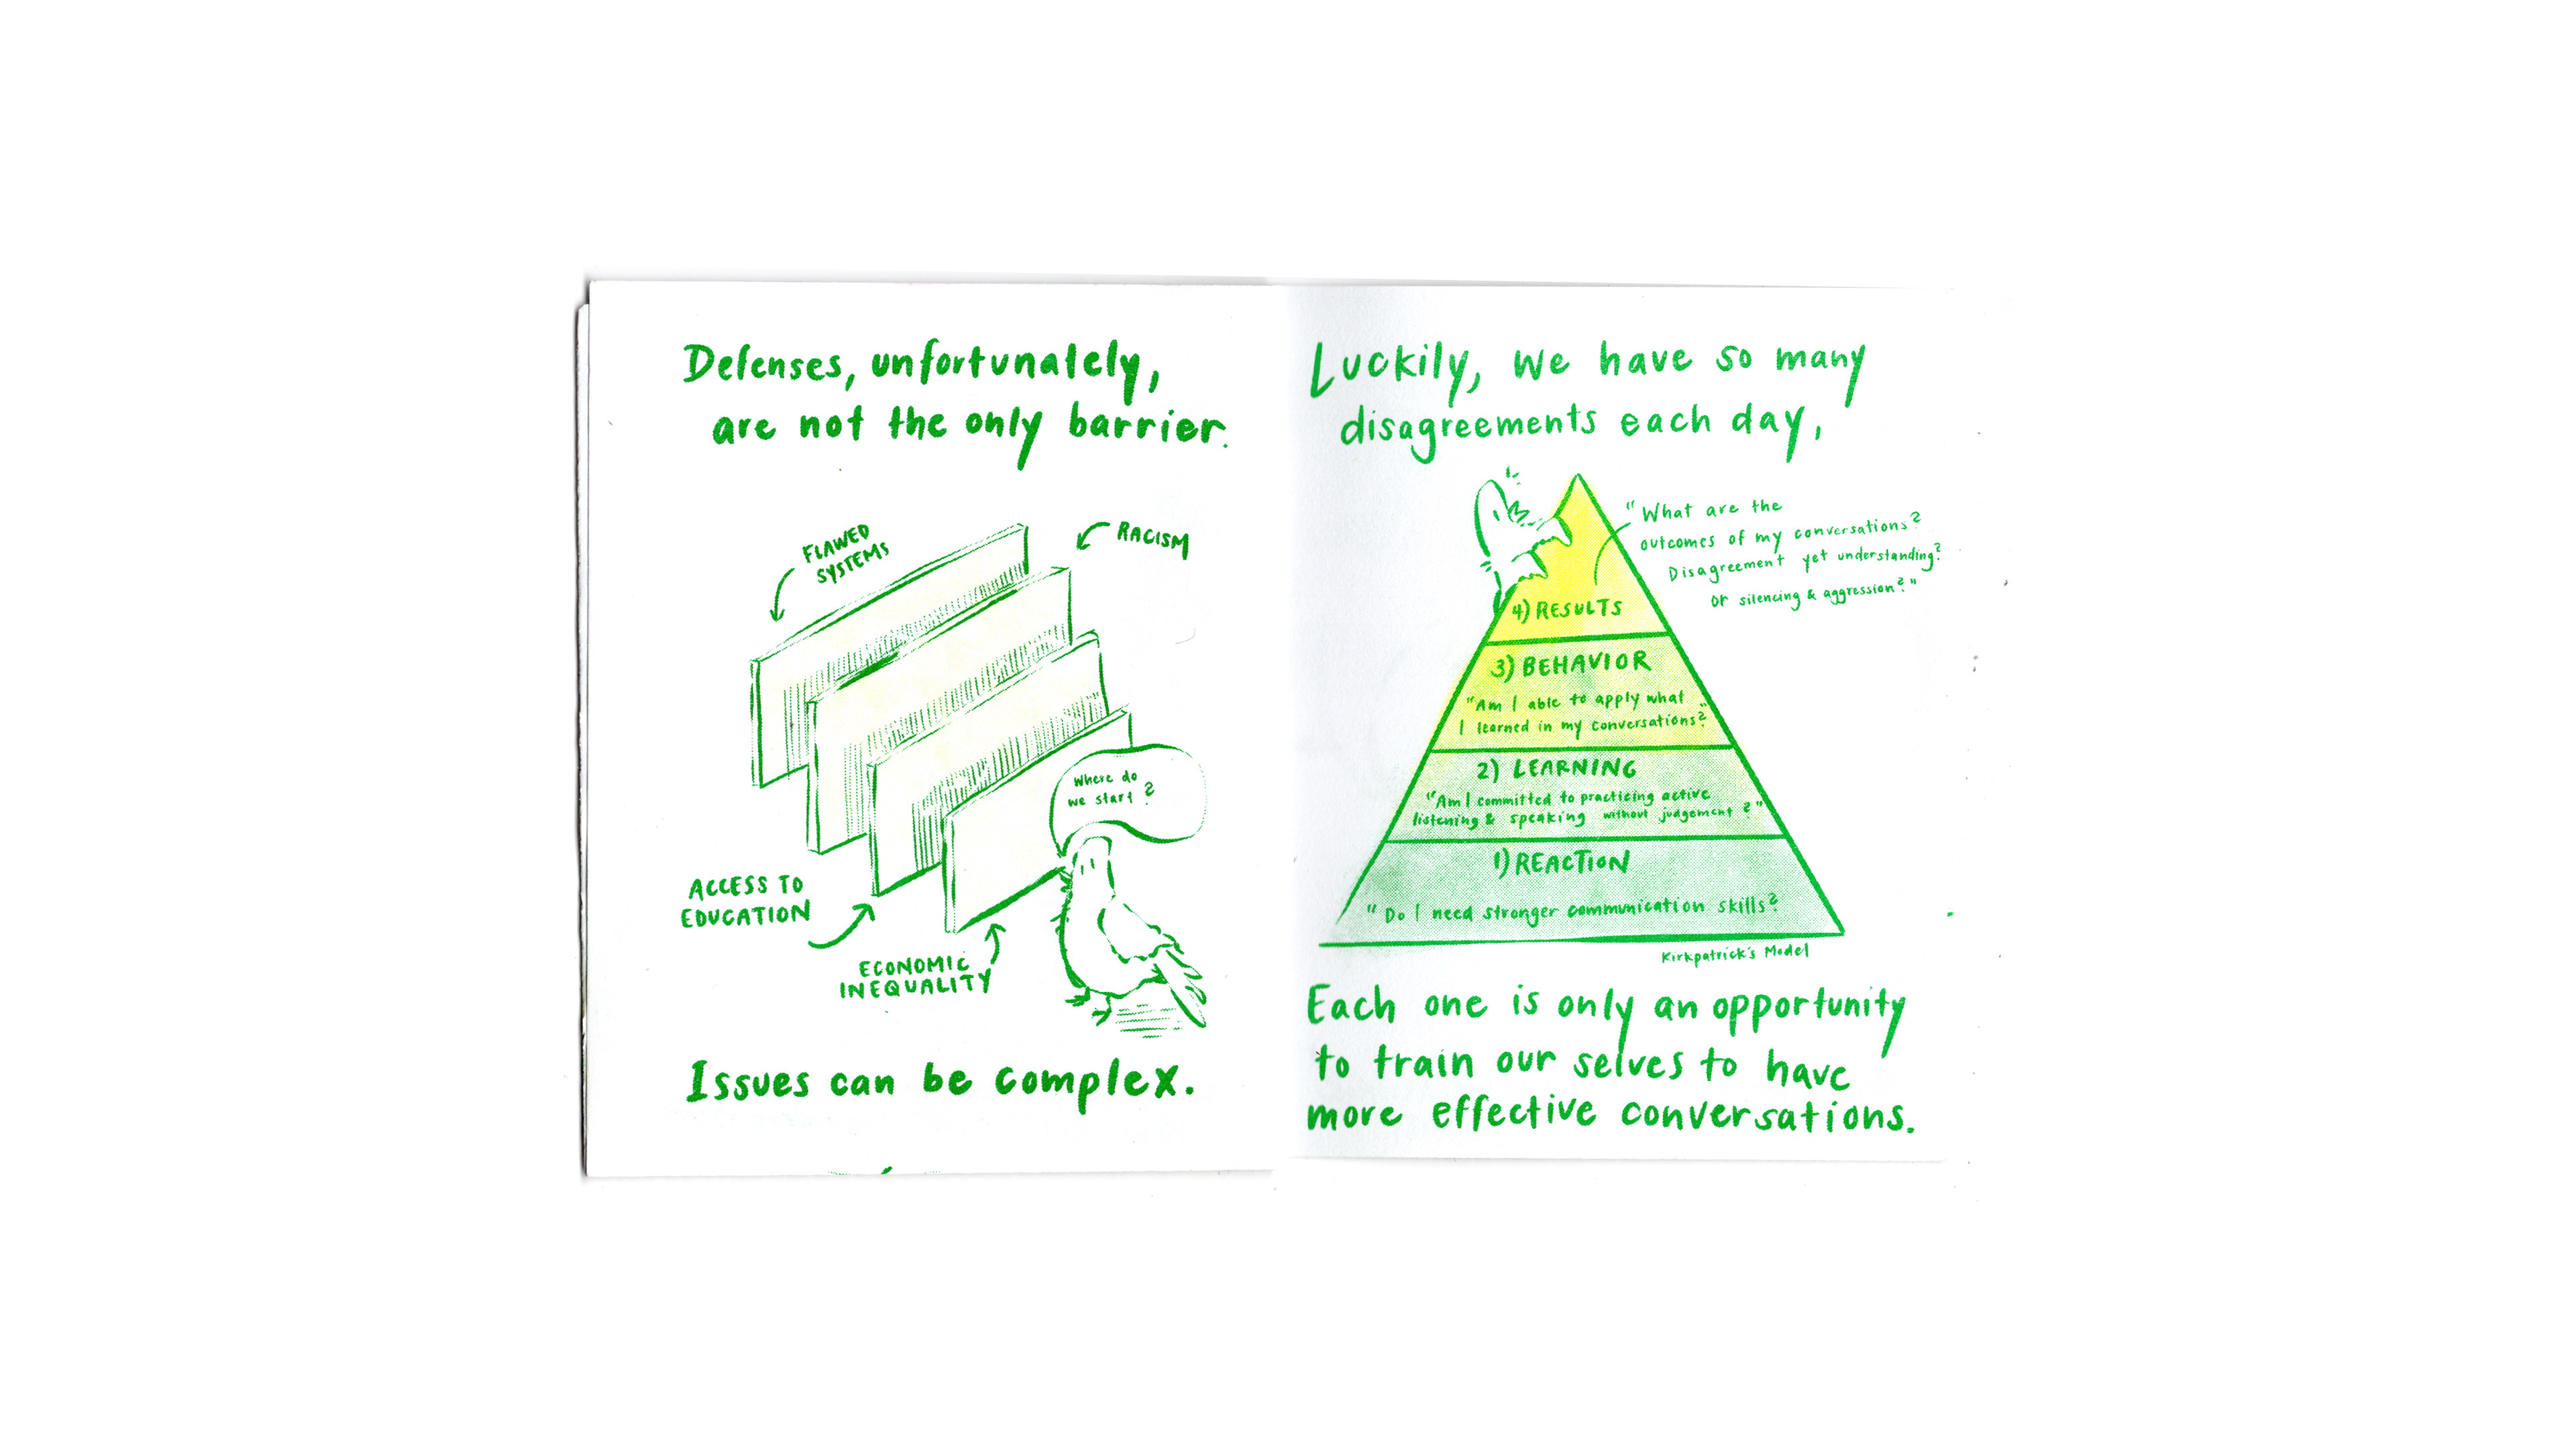 Defenses, unfortunately,
are not the only barrier.
FLAWED
SYSTEMS
RACISM
Where do
we start?
ACCESS TO
EDUCATION
ECONOMIC
INEQUALITY
Issues can be complex.
Luckily, we have so many
disagreements each day,
"What are the
outcomes of my conversations?
Disagreement yet understanding?
or silencing & aggression?"
4) RESULTS
3) BEHAVIOR
"Am I able to apply what
I learned in my conversations?"
2) LEARNING
"Am I committed to practicing active
listening & speaking without judgement?"
1) REACTION
"Do I need stronger communication skills?
Kirkpatrick's Model
Each one is only an opportunity
to train our selves to have
more effective conversations.